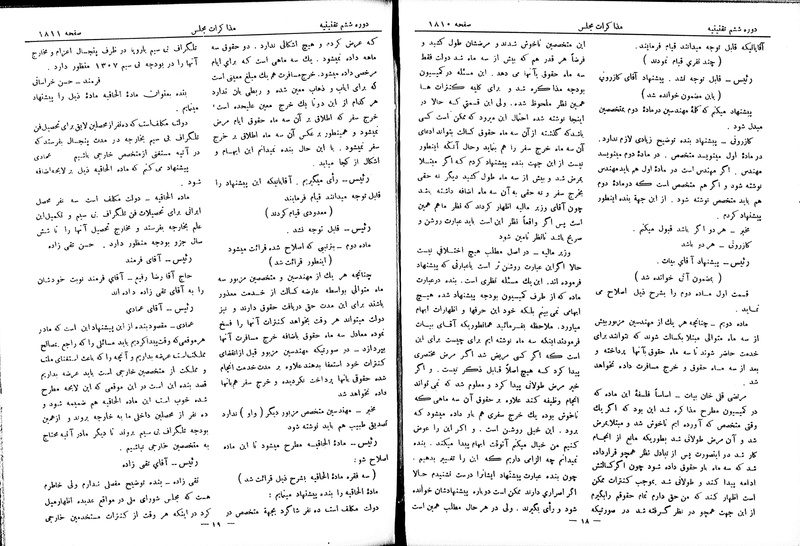 دوره ششم تقنینیه
مذاکرات مجلس
صفحه ۱۸۱۰
آقایانیکه قابل توجه میدانند قیام فرمایند.
(چند نفری قیام نمودند)
رئیس – قابل توجه نشد . پیشنهاد آقای کازرونی
(باین مضمون خوانده شد)
پیشنهاد میکنم که کلمهٔ مهندسین درمادهٔ دوم بمتخصصین
مبدل شود .
کازرونی – پیشنهاد بنده توضیح زیادی لازم ندارد .
در مادهٔ اول مینویسد متخصص . در مادهٔ دوم مینویسد
مهندس . اگر مهندس است در مادهٔ اول هم باید مهندس
نوشته شود و اگر هم متخصص است که درمادهٔ دوم
هم باید متخصص شود . از این جهة بنده اینطور
پیشنهاد کردم .
مخبر – هر دو اگر باشد قبول میکنم .
کازرونی – هر دو باشد
رئیس – پیشنهاد آقای بیات .
(بمضمون آتی خوانده شد)
قسمت اول ماده دوم را بشرح ذیل اصلاح می
نماید .
ماده دیم – چنانچه هر یک از مهندسین مزبور بیش
از سه ماه متوالی مبتلا بکسالت شوند که نتوانند برای
خدمت حاضر شوند تا سه ماه حقوق بآنها پرداخته و
بعد از سه ماه حقوق و خرج مسافرت داده نخواهد
شد .
مرتضی قلی خان بیات – اساساً فلسفهٔ این ماده که
در کمیسیون مطرح مذاکره شد این بود که اگر یک
وقتی متخصص که آورده ایم ناخوش شد و مبتلابمرض
شد و آن مرض طولانی شد بطوریکه مانع از انجام
کار شد در اینصورت پس از تبادل نظر همچو قرارداده
شد که سه ماه باو حقوق داده شود چون اگر کسالتش
ادامه پیدا کند و طولانی شد . بموجب کنترات ممکن
است اظهار کند که من حق دارم تمام حقوقم را بگیرم
از این جهت همچو در نظر گرفته شد در صورتیکه
این متخصصین ناخوش شدند و مرضشان طول کشید و
فرضاً هر قدر هم که بیش از سه ماه شد دولت فقط
سه ماه حقوق بآنها می دهد . این مسئله در کمیسیون
بودجه مذاکره شد و برای کلیه کنترات ها
همین نظر ملحوظ شده . ولی این قسمتی که حالا در
اینجا نوشته شده احتمال این میرود که ممکن است کسی
باشد که گذشته از آن سه ماه حقوق کسالت بتواند ادعای
آن سه ماه خرج سفر را هم بنماید و حال آنکه اینطور
نیست از این جهت بنده پیشنهاد کردم که اگر مبتلا
بمرض شد و بیش از سه ماه طول کشید دیگر نه حقی
بخرج سفر و نه حقی به آن سه ماه اضافه داشته باشد
چون آقای وزیر مالیه اظهار کردند که نظر ما هم همین
است پس اگر واقعاً نظر این است باید عبارت روشن و
صریح باشد تا نظر تامین شود
وزیر مالیه – در اصل مطلب هیچ اختلافی نیست
حالا اگر این عبارت روشن تر است یا عبارتی که پیشنهاد
فرموده اند . این یک مسئله نظری است . بنده درعبارت
ماده که از طرف کمیسیون بودجه پیشنهاد شده هیچ
ابهامی نمی بینم بلکه خود این حرفها و اظهارات ابهام
میآورد. ملاحظه بفرمائید همانطوریکه آقای بیات
فرمودند اینکه سه ماه نوشته ایم برای چیست برای این
است که اگر کسی مریض شد اگر مرض مختصری
پیدا کرد که هیچ اصلاً قابل ذکر نیست . و اگر
خیر مرض طولانی پیدا کرد و معلوم شد که نمی تواند
انجام وظیفه کند علاوه بر حقوق آن سه ماهی که
ناخوش بوده یک خرج سفری هم باو داده میشود که
برود . این خیلی روشن است . و اگر این را عوض
کنیم من خیال میکنم آنوقت ابهام پیدا میکند . بنده
نمیدانم چه الزامی داریم که این را تغییر بدهیم .
چون بنده عبارت پیشنهاد ایشانرا درست نشنیدم حالا
اگر اصراری دارند ممکن است دوباره پیشنهادشان خوانده
شود و رأی بگیرند . ولی در هر حال مطلب همین است
— ۱۸ —
دوره ششم تقنینیه
مذاکرات مجلس
صفحه ۱۸۱۱
که عرض کردم و هیچ اشکالی ندارد . دو حقوق سه
ماهه داده نمیشود . یک سه ماهی است که برای ایام
مرخصی داده میشود. خرج مسافرت هم یک مبلغ معینی است
که برای ایاب و ذهاب معین شده و ربطی بآن ندارد
هر کدام از این دوتا یک خرج معین علیحده است
خرج سفر که اطلاق بر آن سه ماه حقوق ایام مرض
نمیشود و همینطور بر عکس آن سه ماه اطلاق بر خرج
سفر نمیشود . با این حال بنده نمیدانم این ابهام و
اشکال از کجا میآید .
رئیس – رأی میگیریم . آقایانیکه این پیشنهاد را
قابل توجه میدانند قیام فرمایند
(معدودی قیام کردند)
رئیس – قابل توجه نشد .
ماده دوم – بترتیبی که اصلاح شده قرائت میشود
(اینطور قرائت شد)
چنانچه هر یک از مهندسین و متخصصین مزبور سه
ماه متوالی بواسطه عارضه کسالت از خدمت معذور
باشند برای این مدت حق دریافت حقوق دارند و نیز
دولت میتواند هر وقت بخواهد کنترات آنها را فسخ
نموده معادل سه ماه حقوق باضافه خرج مسافرت آنها
بپردازد – در صورتیکه مهندسین مزبور قبل از انقضای
کنترات خود استعفا بدهند علاوه بر مدت خدمت انجام
شده حقوقی بآنها پرداخت نگردیده و خرج سفر هم بآنها
داده نخواهد شد
مخبر – مهندسین متخصص مزبور دیگر (واو) ندارد
تصدیق طبیب هم باید نوشته شود
رئیس – مادهٔ الحاقیه مطرح میشود تا این ماده
اصلاح شود :
(سه فقره مادهٔ الحاقیه بشرح ذیل قرائت شد)
مادهٔ الحاقیه را بنده پیشنهاد مینمایم :
دولت مکلف است ده نفر شاگرد بجههٔ متخصص در
تلگراف بی سیم باروپا در ظرف پنجسال اعزام و مخارج
آنها را در بودجه بی سیم ۱۳۰۷ منظور دارد .
فرمند – حسن خراسانی
بنده بعنوان مادهٔ الحاقیه مادهٔ ذیل را پیشنهاد
مینمایم .
دولت مکلف است که ده نفر از محصلین لایق برای تحصیل فن
تلگراف بی سیم بخارجه در مدت پنجسال بفرستد که
در آتیه مستغنی از متخصص خارجی باشیم عمادی
پیشنهاد می کنم که ماده الحاقیه ذیل بر لایحه اضافه
شود .
ماده الحاقیه – دولت مکلف است سه نفر محصل
ایرانی برای تحصیلات فن تلگرافی بی سیم و تکمیل این
علم بخارجه بفرستد و مخارج تحصیل آنها را تا شش
سال جزو بودجه منظور دارد . حسن تقی زاده
رئیس – آقای فرمند
حاج آقا رضا رفیع – آقای فرمند نوبت خودشان
را به آقای تقی زاده داده اند
رئیس – آقای عمادی
عمادی – مقصود بنده از این پیشنهاد این است که مادر
هر موقعی که وقت پیدا کردیم باید مسائلی را که راجع بمصالح
مملکت است عرضه بداریم و آنچه را که باعث استغنای ملت
و مملکت از متخصصین خارجی است باید عرضه بداریم
قصد بنده این است در این موقعی که این لایحه مطرح
شده خوب است این ماده الحاقیه هم ضمیمه شود و
ده نفر از محصلین داخلی ما به خارجه بروند و از همین
بودجه تلگراف بی سیم بروند تا دیگر مادر آتیه محتاج
به متخصصین خارجی نباشیم .
رئیس – آقای تقی زاده
تقی زاده – بنده توضیح مفصلی ندارم ولی خاطرم
هست که مجلس شورای ملی در مواقع عدیده اظهار میل
کرد در اینکه هر وقت از کنترات مستخدمین خارجی
— ۱۹ —